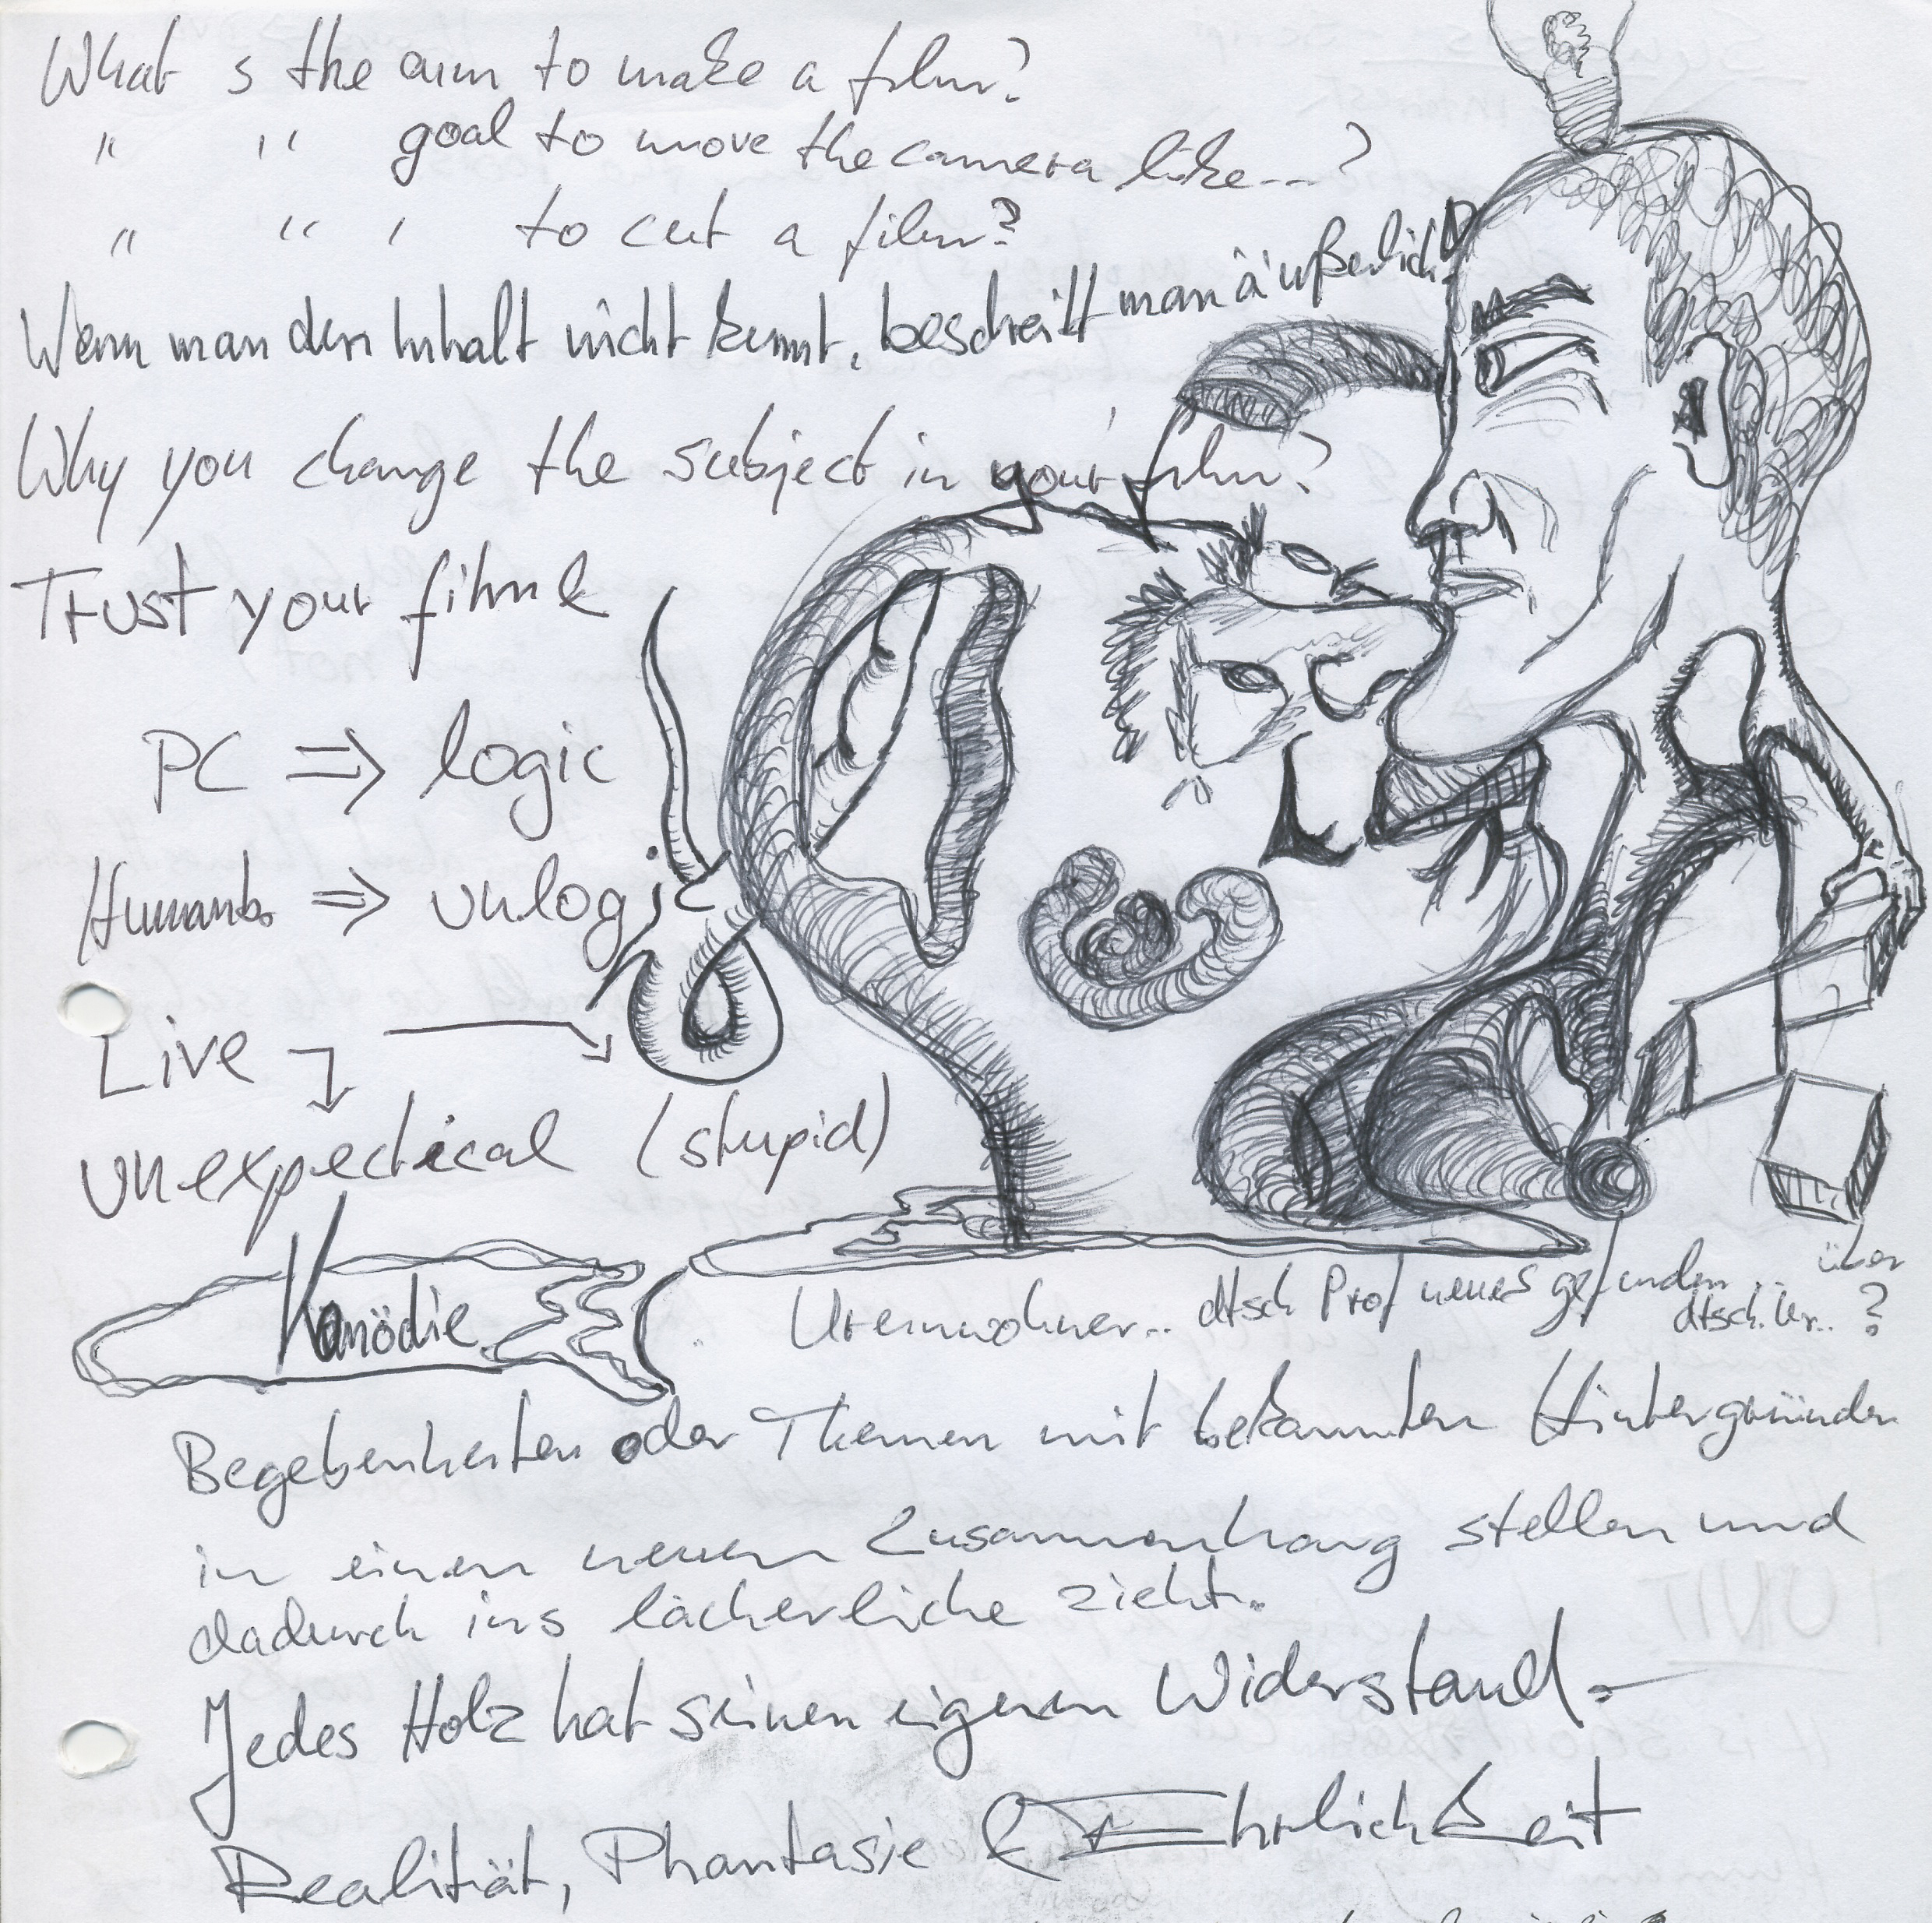 What s the aim to make a film?
" " goal to move the camera like...?
" " ' to cut a film?
Wenn man den Inhalt nicht kennt, beschreitt man äußerlich!
Why you change the subject in your film?
Trust your filme
PC ⇒ logic
Humans ⇒ unlogic
Live
unexpectical (stupid)
Komödie
Ureinwohner.. dtsch Prof neues gefunden... über
dtsch. Ur.. ?
Begebenheiten oder Themen mit bekannten Hintergründen
in einen neuen Zusammenhang stellen und
dadurch ins lächerliche zieht.
Jedes Holz hat seinen eigenen Widerstand.
Realität, Phantasie & Ehrlichkeit